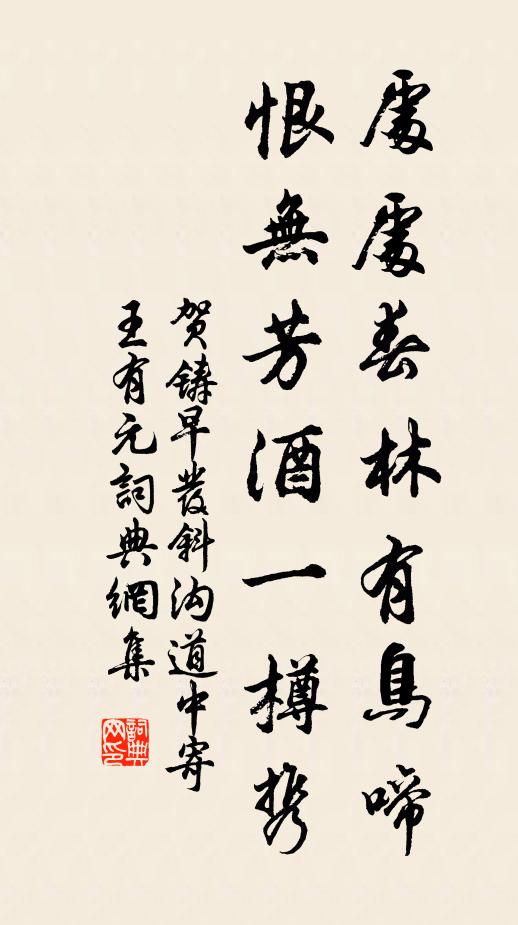 處處春林有鳥啼
恨無芳酒一樽携
賀鑄早發斜沟道中寄
王有元詞典網集
詞典网印